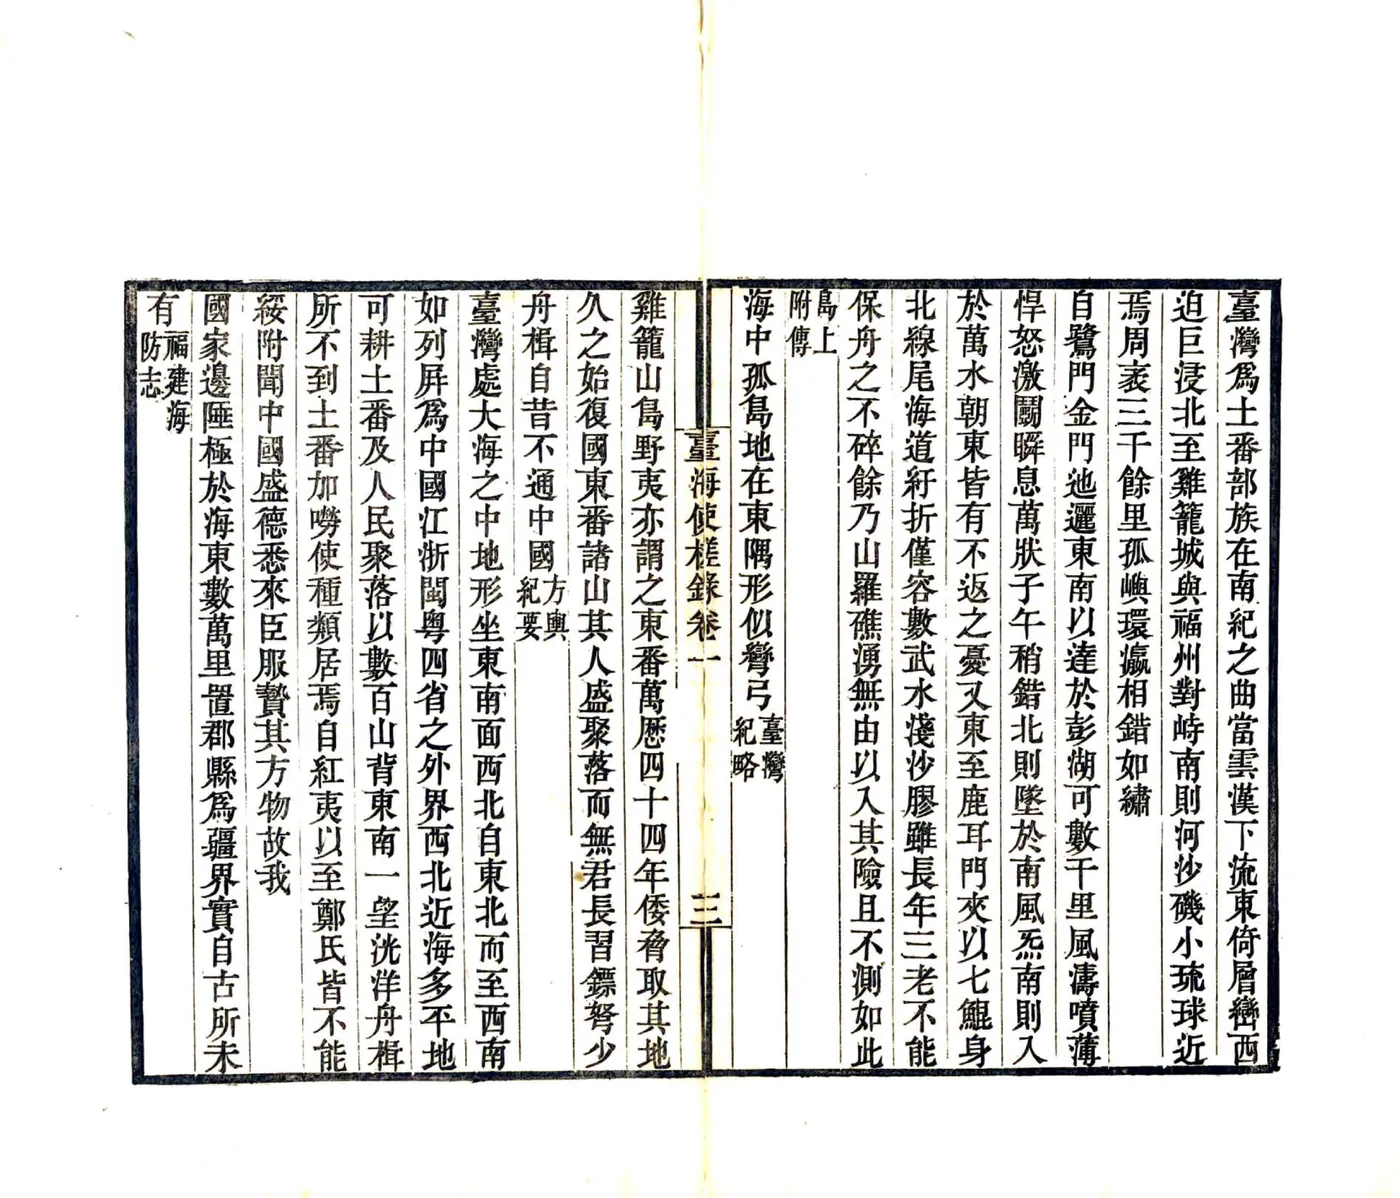 臺灣爲土番部族在南紀之曲當雲漢下流東倚層巒西
迫巨浸北至雞籠城與福州對峙南則河沙磯小琉球近
焉周袤三千餘里孤嶼環瀛相錯如繡
自鷺門金門迆邐東南以達於彭湖可數千里風濤噴薄
悍怒激鬭瞬息萬狀子午稍錯北則墜於南風炁南則入
於萬水朝東皆有不返之憂又東至鹿耳門夾以七鯤身
北線尾海道紆折僅容數武水淺沙膠雖長年三老不能
保舟之不碎餘乃山羅礁湧無由以入其險且不測如此
島上
附傳
海中孤島地在東隅形似彎弓臺灣
紀略
臺海使槎錄卷一
三
雞籠山島野夷亦謂之東番萬歷四十四年倭脅取其地
久之始復國東番諸山其人盛聚落而無君長習鏢弩少
舟楫自昔不通中國方輿
紀要
臺灣處大海之中地形坐東南面西北自東北而至西南
如列屏爲中國江浙閩粤四省之外界西北近海多平地
可耕土番及人民聚落以數百山背東南一望洸洋舟楫
所不到土番加嘮使種類居焉自紅夷以至鄭氏皆不能
綏附聞中國盛德悉來臣服贄其方物故我
國家邊陲極於海東數萬里置郡縣爲疆界實自古所未
有福建海
防志